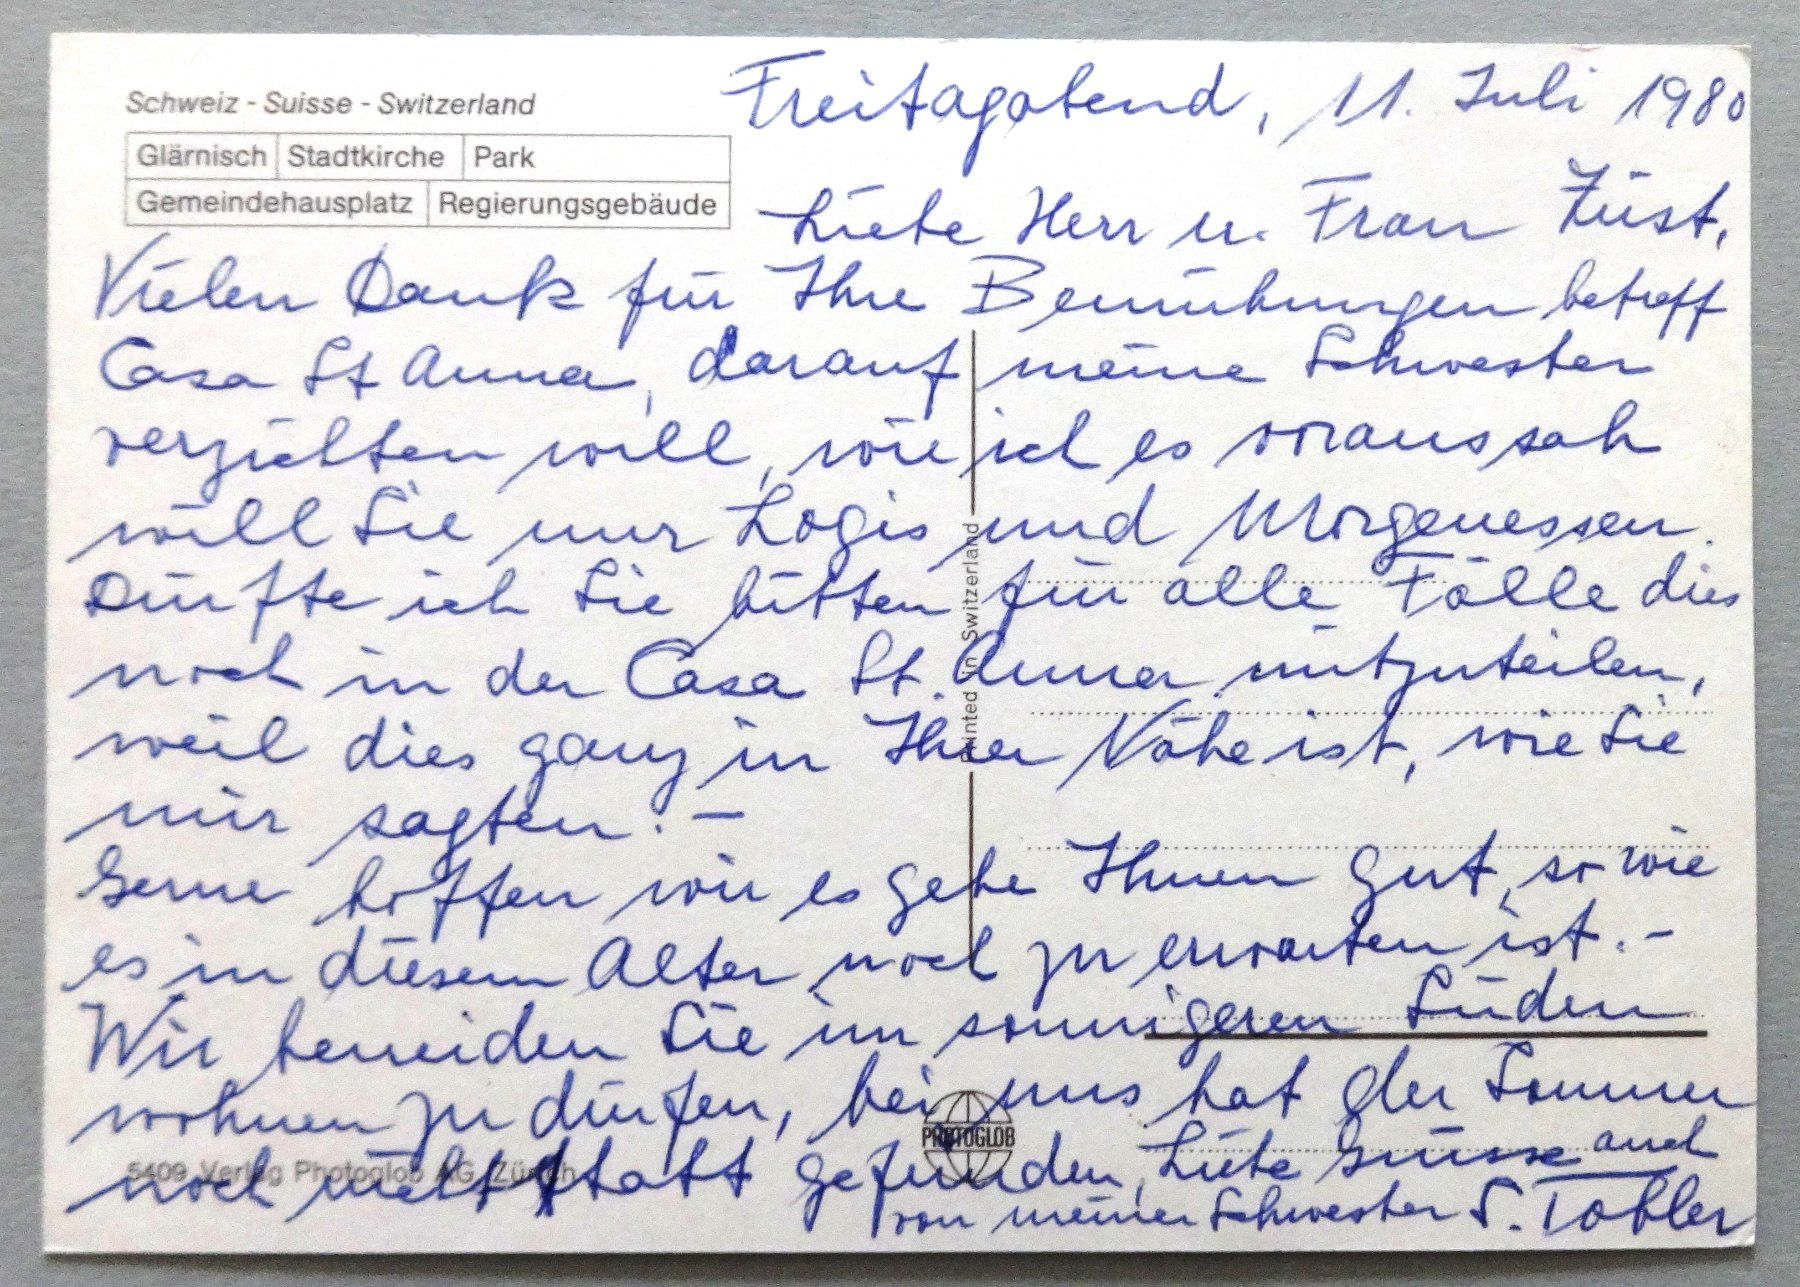 Schweiz - Suisse - Switzerland
Glärnisch Stadtkirche Park
Gemeindehausplatz Regierungsgebäude
Freitagabend, 11. Juli 1980
Liebe Herr u. Frau Züst,
Vielen Dank für Ihre Bemühungen betreff
Casa St Anna, darauf meine Schwester
verzichten will, wie ich es voraussah
will Sie nur Logis und Morgenessen.
Dürfte ich Sie bitten für alle Fälle dies
noch in der Casa St. Anna mitzuteilen,
weil dies ganz in Ihrer Nähe ist, wie Sie
mir sagten. –
Gerne hoffen wir es gehe Ihnen gut, so wie
es in diesem Alter noch zu erwarten ist. –
Wir beneiden Sie im sonnigeren Süden
wohnen zu dürfen, bei uns hat der Sommer
noch nicht statt gefunden, Liebe Grüsse auch
von meiner Schwester S. Tobler
Printed in Switzerland
PHOTOGLOB
5409 Verlag Photoglob AG, Zürich